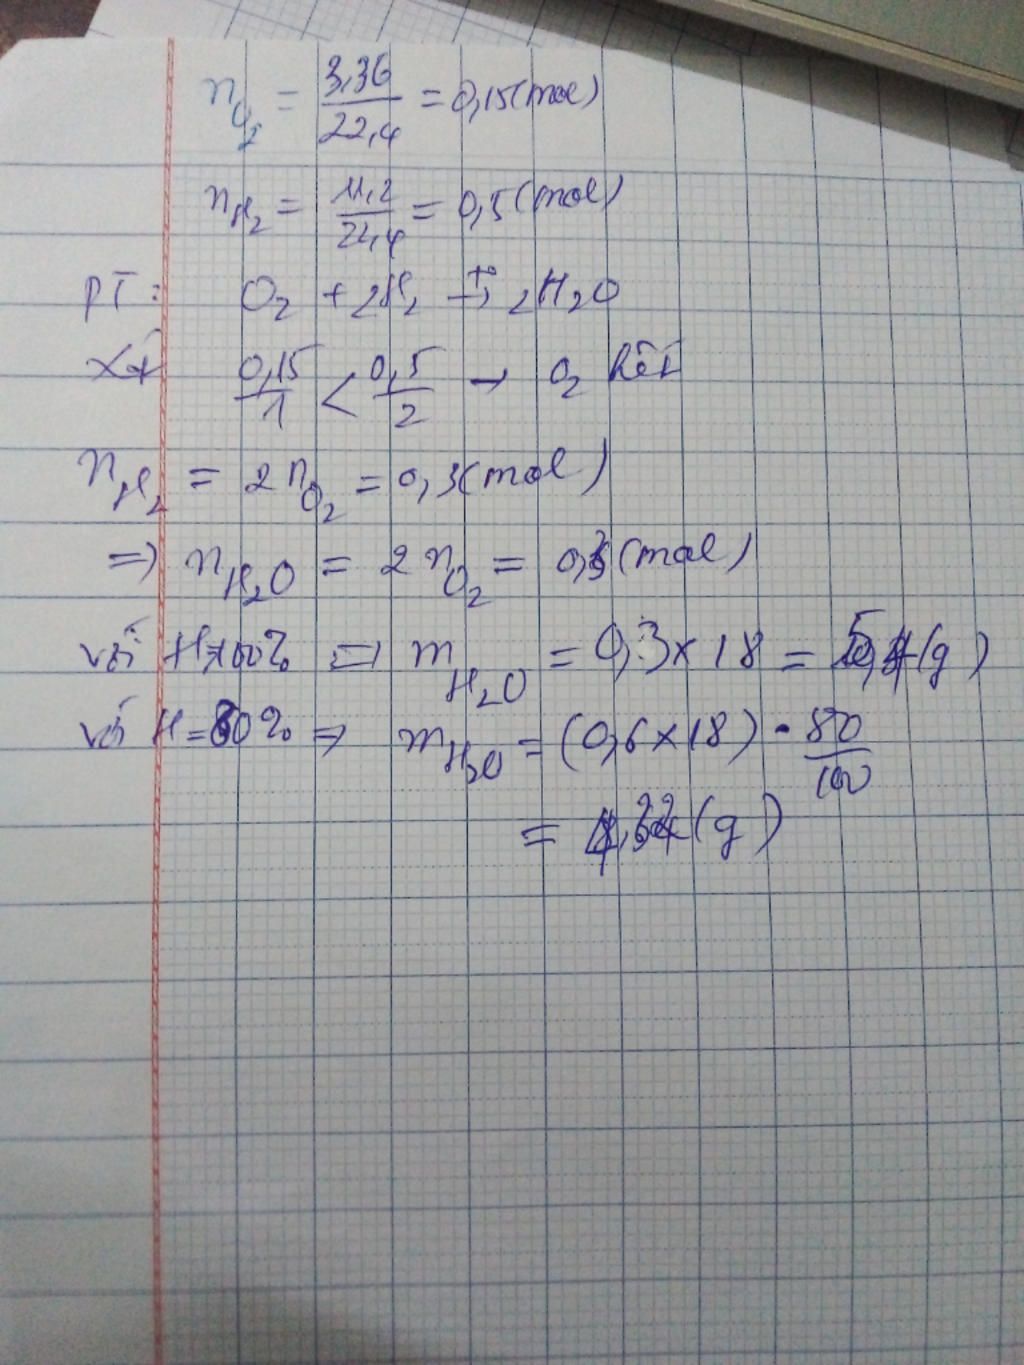 nO₂ = 3,36/22,4 = 0,15(mol)
nH₂ = 11,2/22,4 = 0,5(mol)
PT: O₂ + 2H₂ →t° 2H₂O
Xét 0,15/1 < 0,5/2 → O₂ hết
nH₂ = 2nO₂ = 0,3(mol)
=> nH₂O = 2nO₂ = 0,3(mol)
với H=100% => mH₂O = 0,3×18 = 5,4(g)
với H=80% => mH₂O = (0,6×18) . 80/100
= 4,32(g)